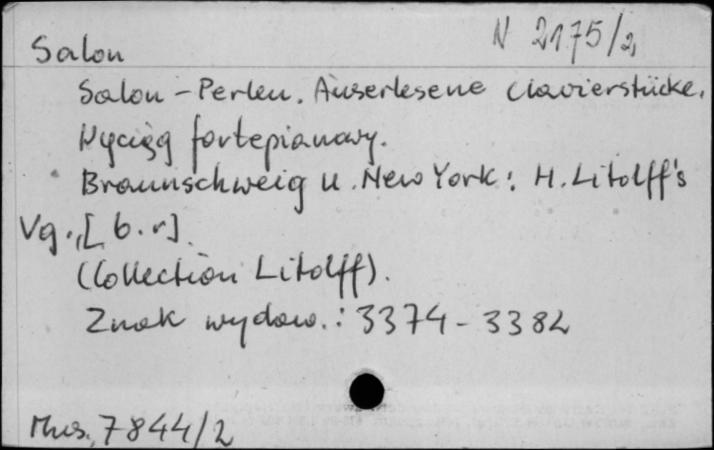 N 2175/2
Salon
Salon - Perlen. Auserlesene Clavierstücke.
Wyciąg fortepianowy.
Braunschweig u. New York: H. Litolff's
Vg., [b.r].
(Collection Litolff).
Znak wydaw.: 3374 - 3382
Mus. 7844/2